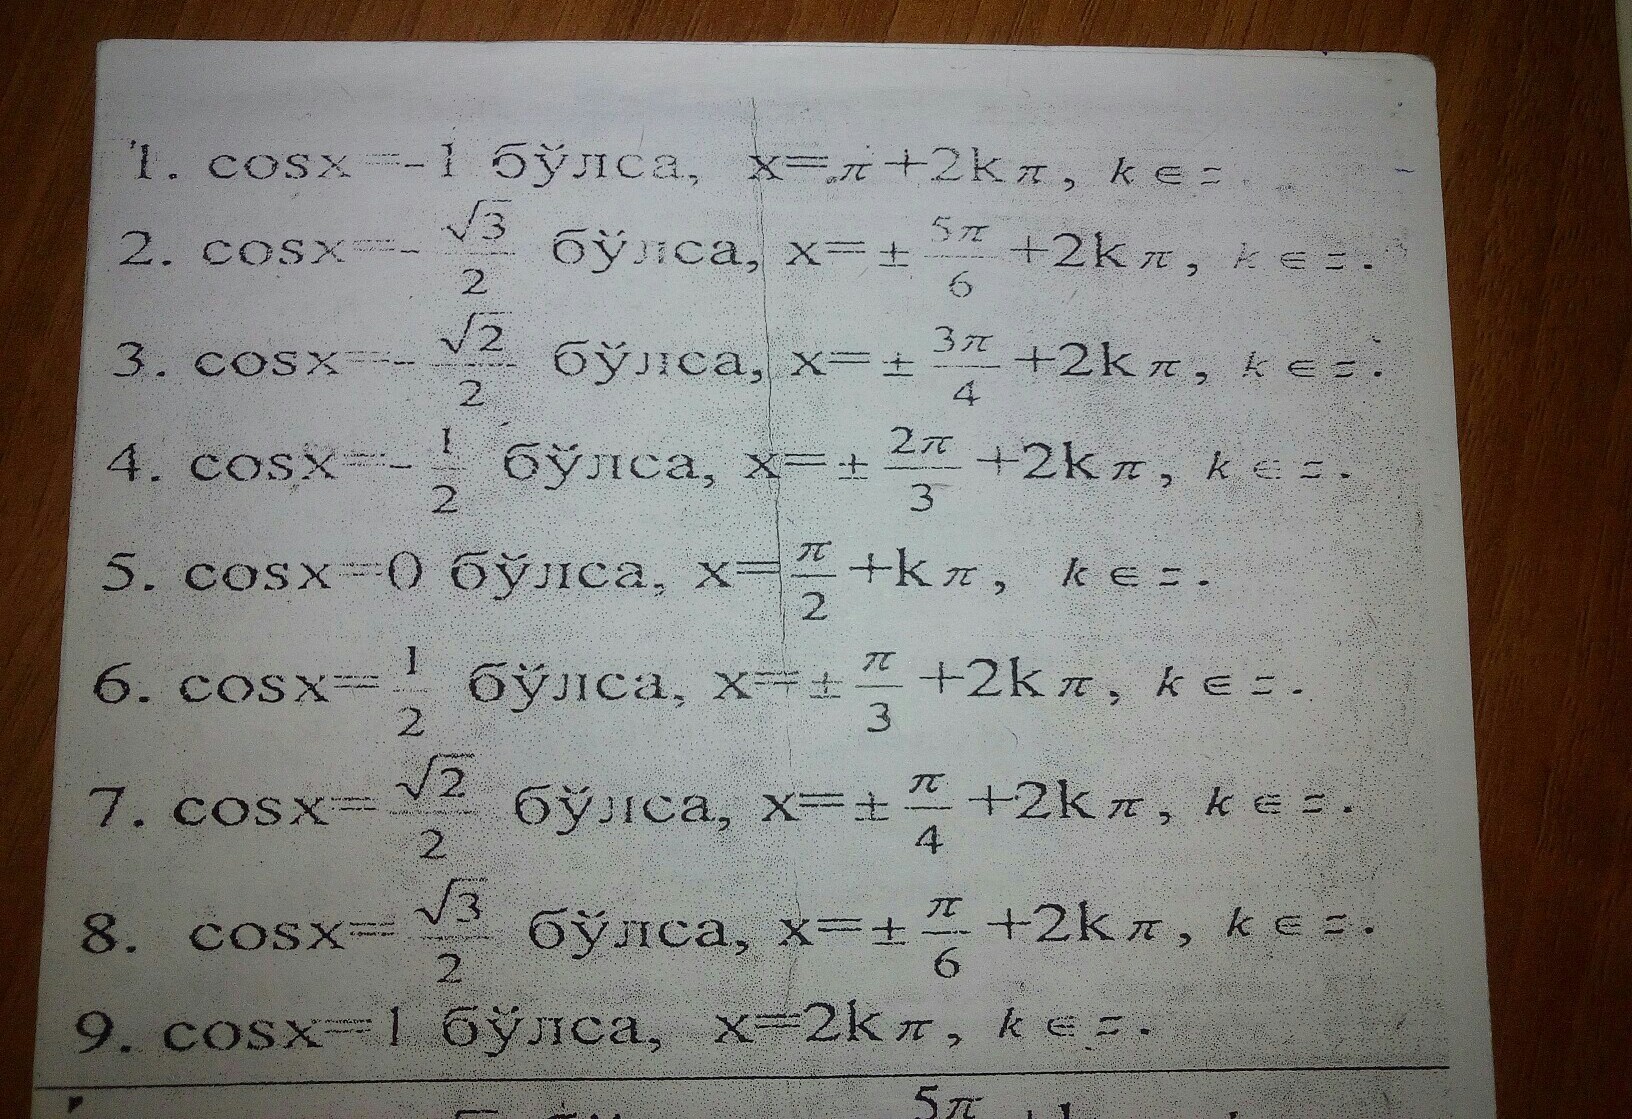 1. cosx=-1 бўлса, x=π+2kπ, k∈z.
2. cosx=-√3/2 бўлса, x=±5π/6+2kπ, k∈z.
3. cosx=-√2/2 бўлса, x=±3π/4+2kπ, k∈z.
4. cosx=-1/2 бўлса, x=±2π/3+2kπ, k∈z.
5. cosx=0 бўлса, x=π/2+kπ, k∈z.
6. cosx=1/2 бўлса, x=±π/3+2kπ, k∈z.
7. cosx=√2/2 бўлса, x=±π/4+2kπ, k∈z.
8. cosx=√3/2 бўлса, x=±π/6+2kπ, k∈z.
9. cosx=1 бўлса, x=2kπ, k∈z.
5π